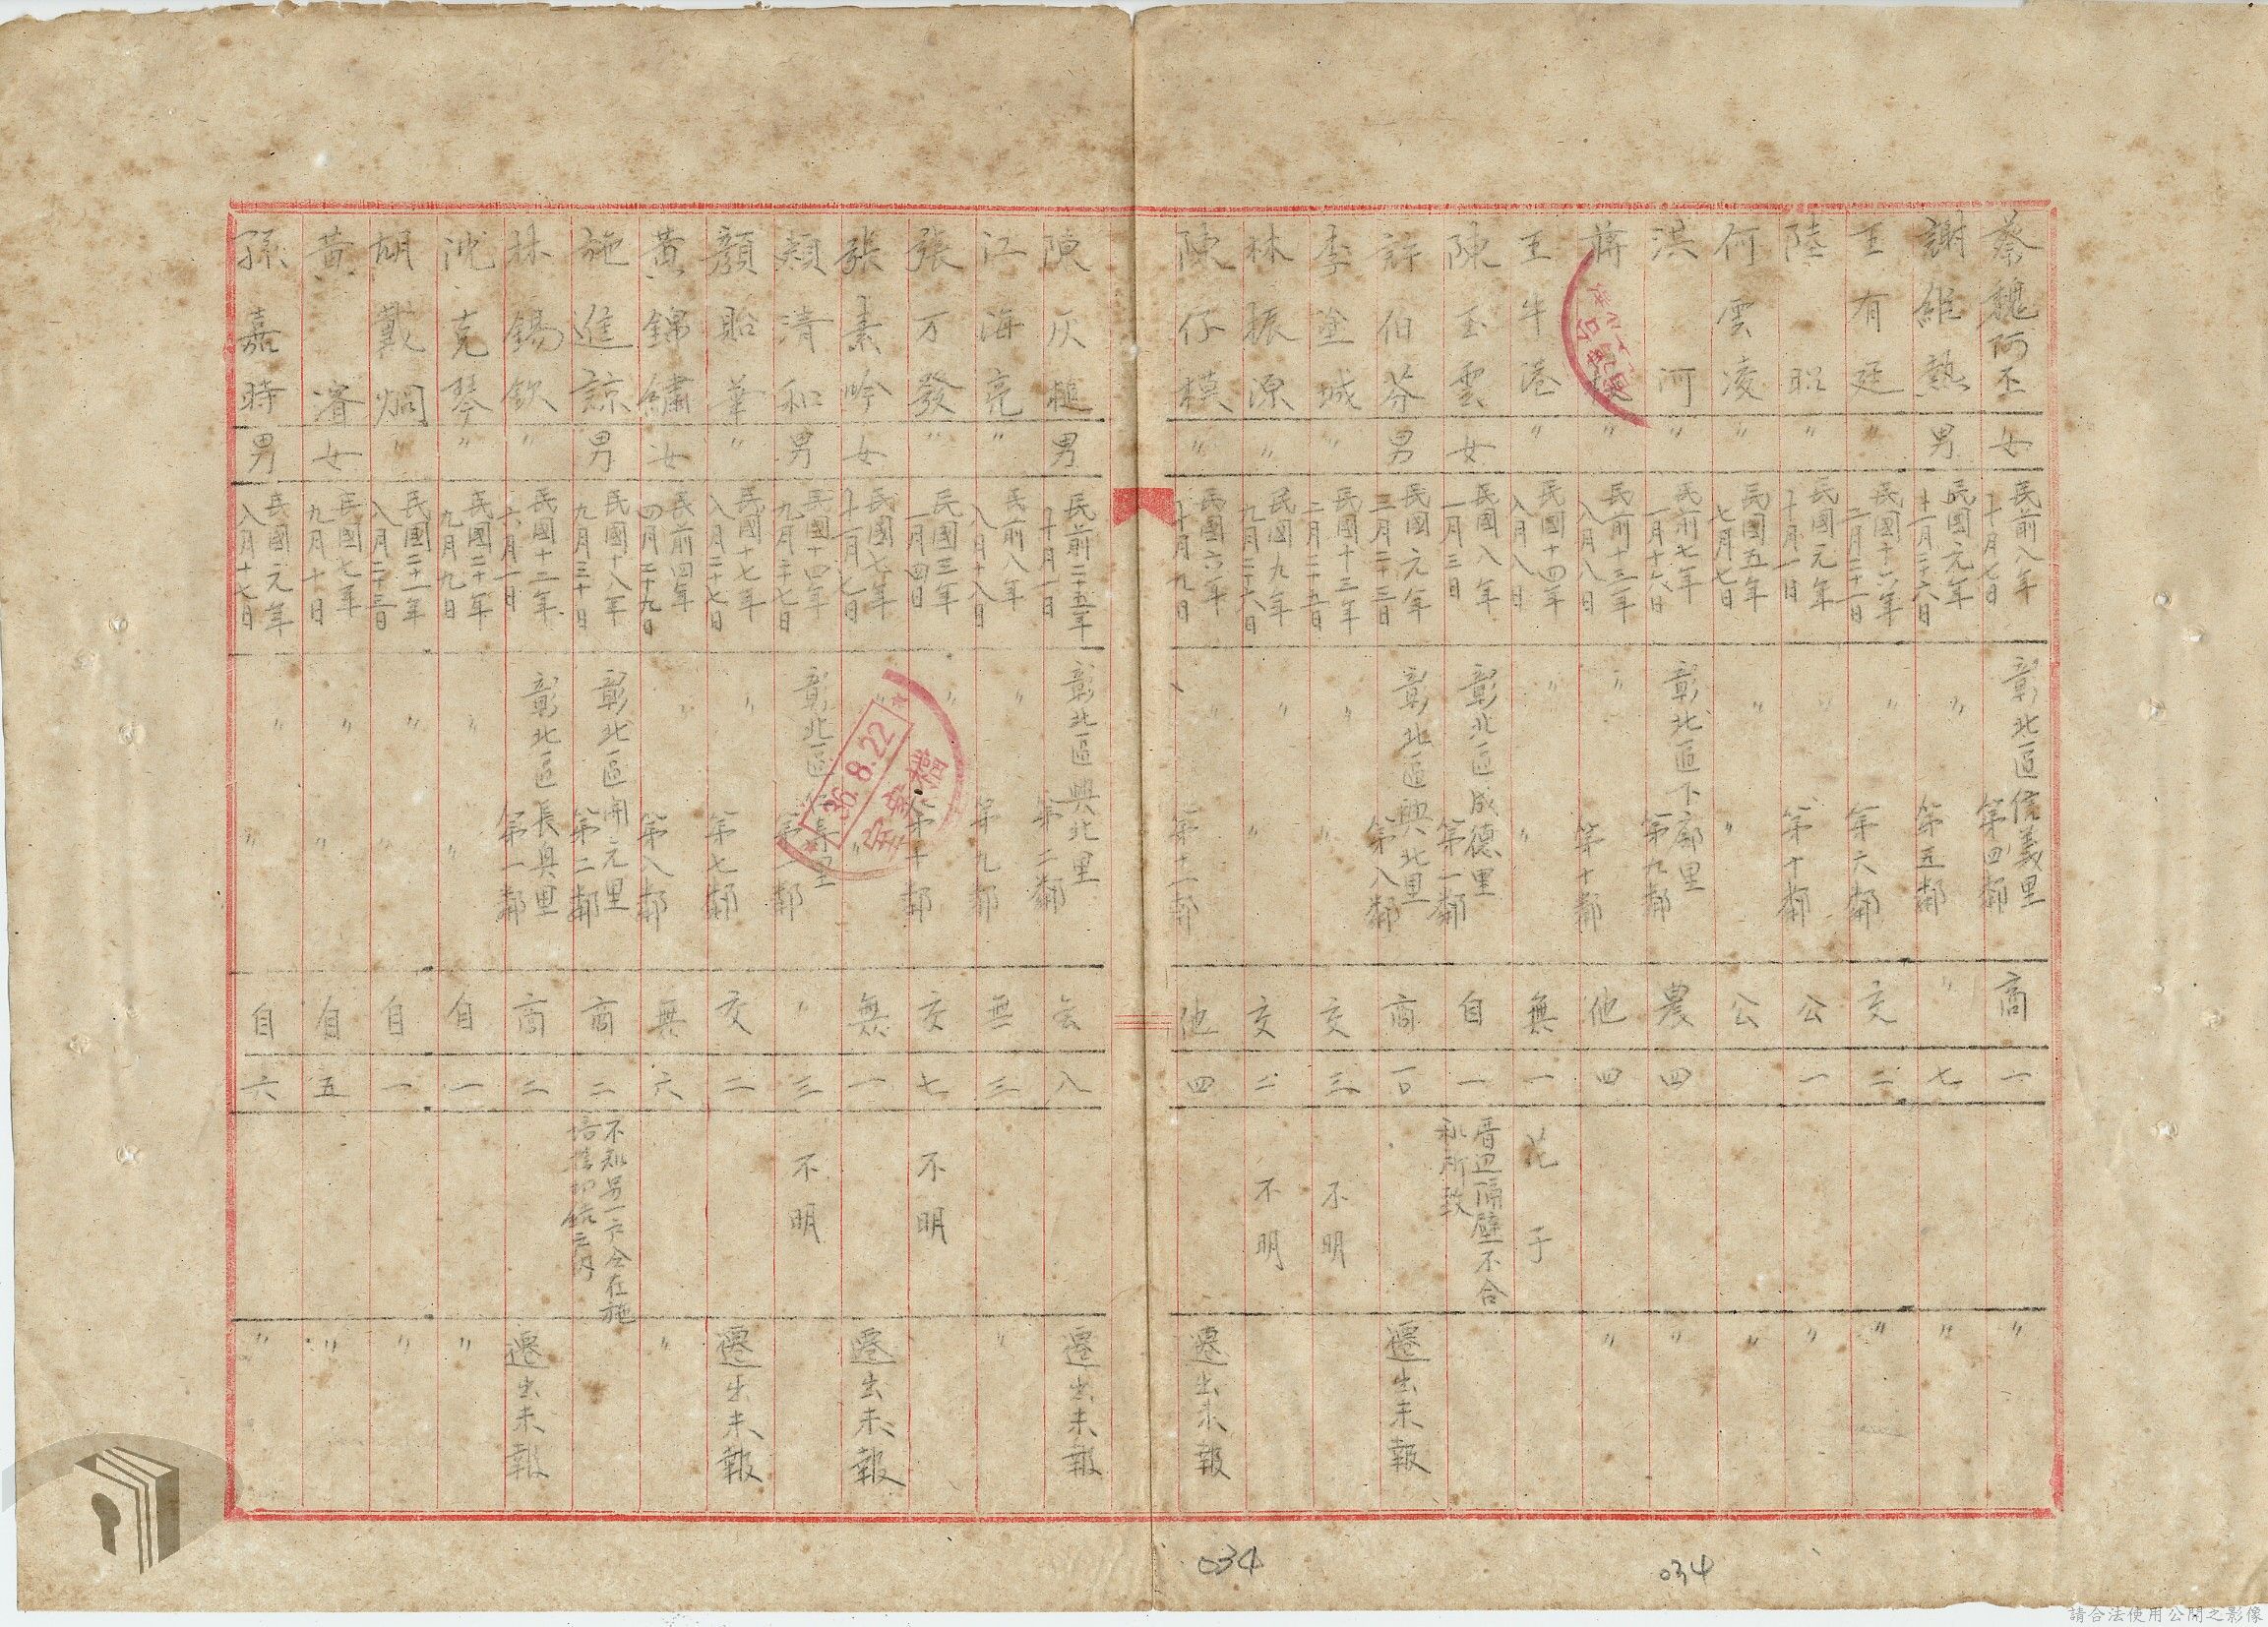 蔡魏阿丕 女 民前八年十月七日 彰北區信義里第四鄰 商 一 〃
謝維熱 男 民國元年十一月二十六日 〃 第五鄰 〃 七 〃
王有廷 〃 民國十六年二月二十一日 〃 第六鄰 交 二 〃
陸職 〃 民國元年十月一日 〃 第十鄰 公 一 〃
何雲凌 〃 民國五年七月七日 〃 〃 公 〃
洪河 〃 民前七年一月十六日 彰北區下廍里第九鄰 農 四 〃
蔣 〃 民前十三年八月八日 〃 第十鄰 他 四 〃
王牛港 〃 民國十四年八月八日 〃 〃 無 一
陳玉雲 女 民國八年一月三日 彰北區成德里第一鄰 自 一 厝邊隔壁不合和所致
許伯芬 男 民國元年三月二十三日 彰北區興北里第八鄰 商 一〇 遷出未報
李塗城 〃 民國十三年二月二十五日 〃 〃 交 三 不明
林振源 〃 民國九年九月二十六日 〃 〃 交 二 不明
陳仔模 〃 民國六年十月九日 〃 第十一鄰 他 四 遷出未報
陳仄槌 男 民前二十五年十月一日 彰北區興北里第二鄰 八 遷出未報
江海亮 〃 民前八年八月十八日 〃 第九鄰 無 三 〃
張万發 〃 民國三年一月四日 〃 第十鄰 交 七 不明
張素吟 女 民國七年十一月七日 〃 〃 無 一 遷出未報
賴清和 男 民國十四年九月二十七日 彰北區長里第一鄰 〃 三 不明
顏貽華 〃 民國十七年八月二十七日 〃 第七鄰 交 二 遷出未報
黃錦繡 女 民前四年四月二十九日 〃 第八鄰 無 六 〃
施進諒 男 民國十八年九月三十日 彰北區開元里第二鄰 商 二 不知另一户合在施
林錫欽 〃 民國十二年六月一日 彰北區長興里第一鄰 商 二 遷出未報
沈克琴 〃 民國二十年九月九日 〃 〃 自 一 〃
胡戴炯 〃 民國二十一年八月二十三日 〃 〃 自 一 〃
黃濬 女 民國七年九月十日 〃 〃 自 五 〃
孫嘉時 男 民國元年八月十七日 〃 〃 自 六 〃
36.8.22
檔案室
034
034
請合法使用公開之影像